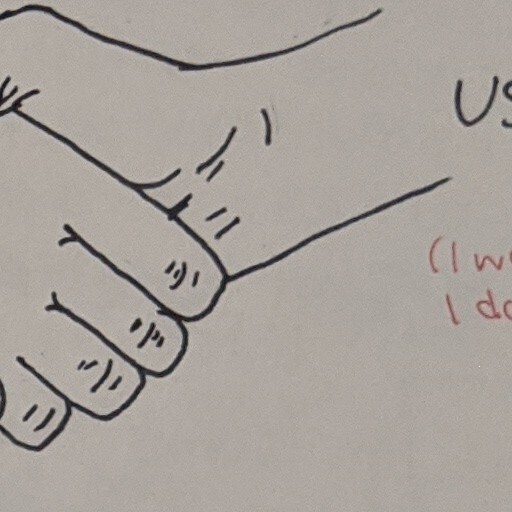 US
(I w
I do